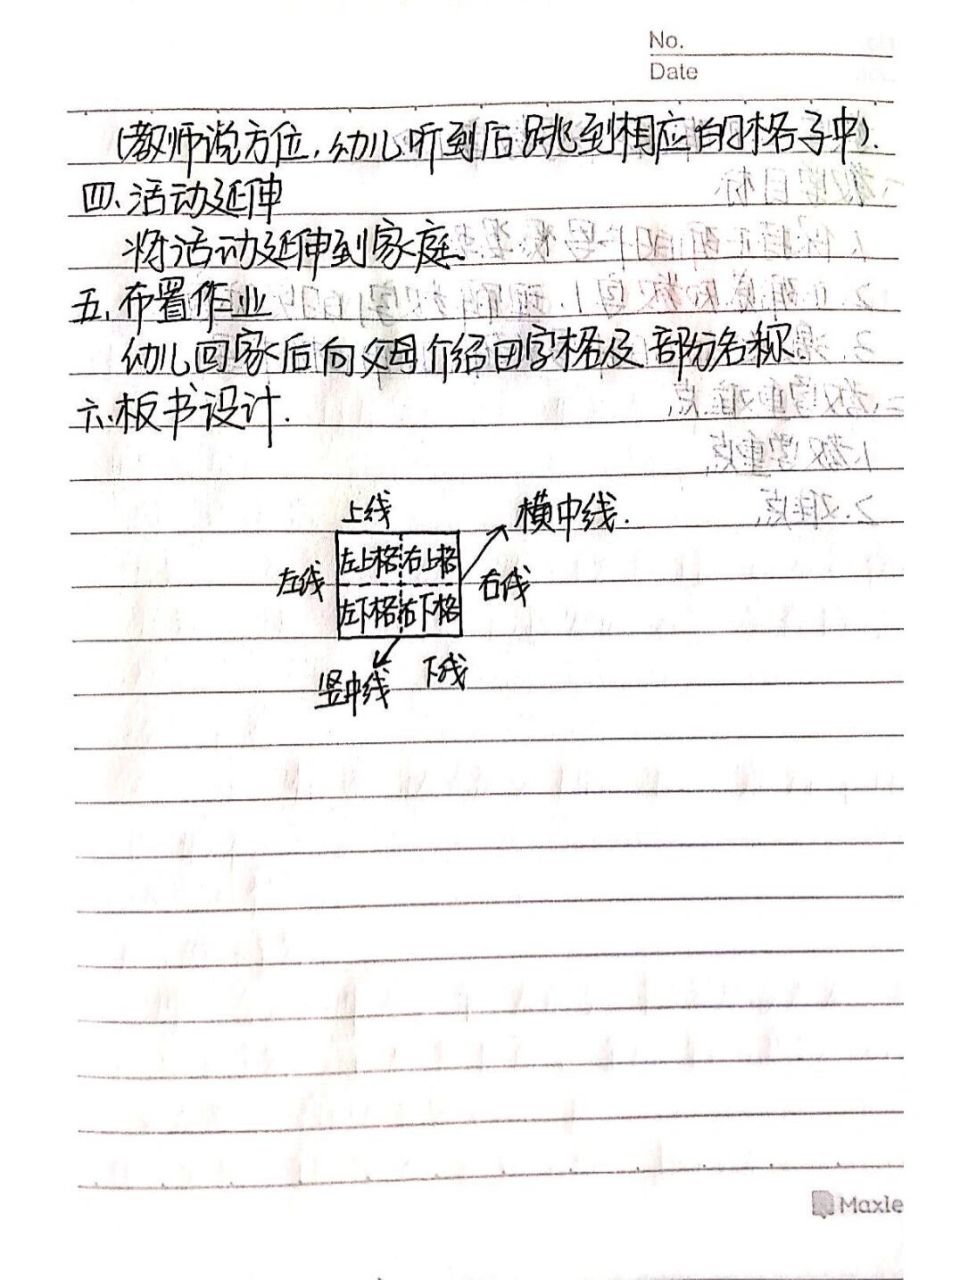 No.
Date
(教师说方位,幼儿听到后跳到相应的格子中).
四.活动延伸
将活动延伸到家庭.
五.布置作业
幼儿回家后向父母介绍田字格及部分名称.
六.板书设计.
上线
横中线.
左上格 右上格
左线
右线
左下格 右下格
竖中线
下线
Maxle